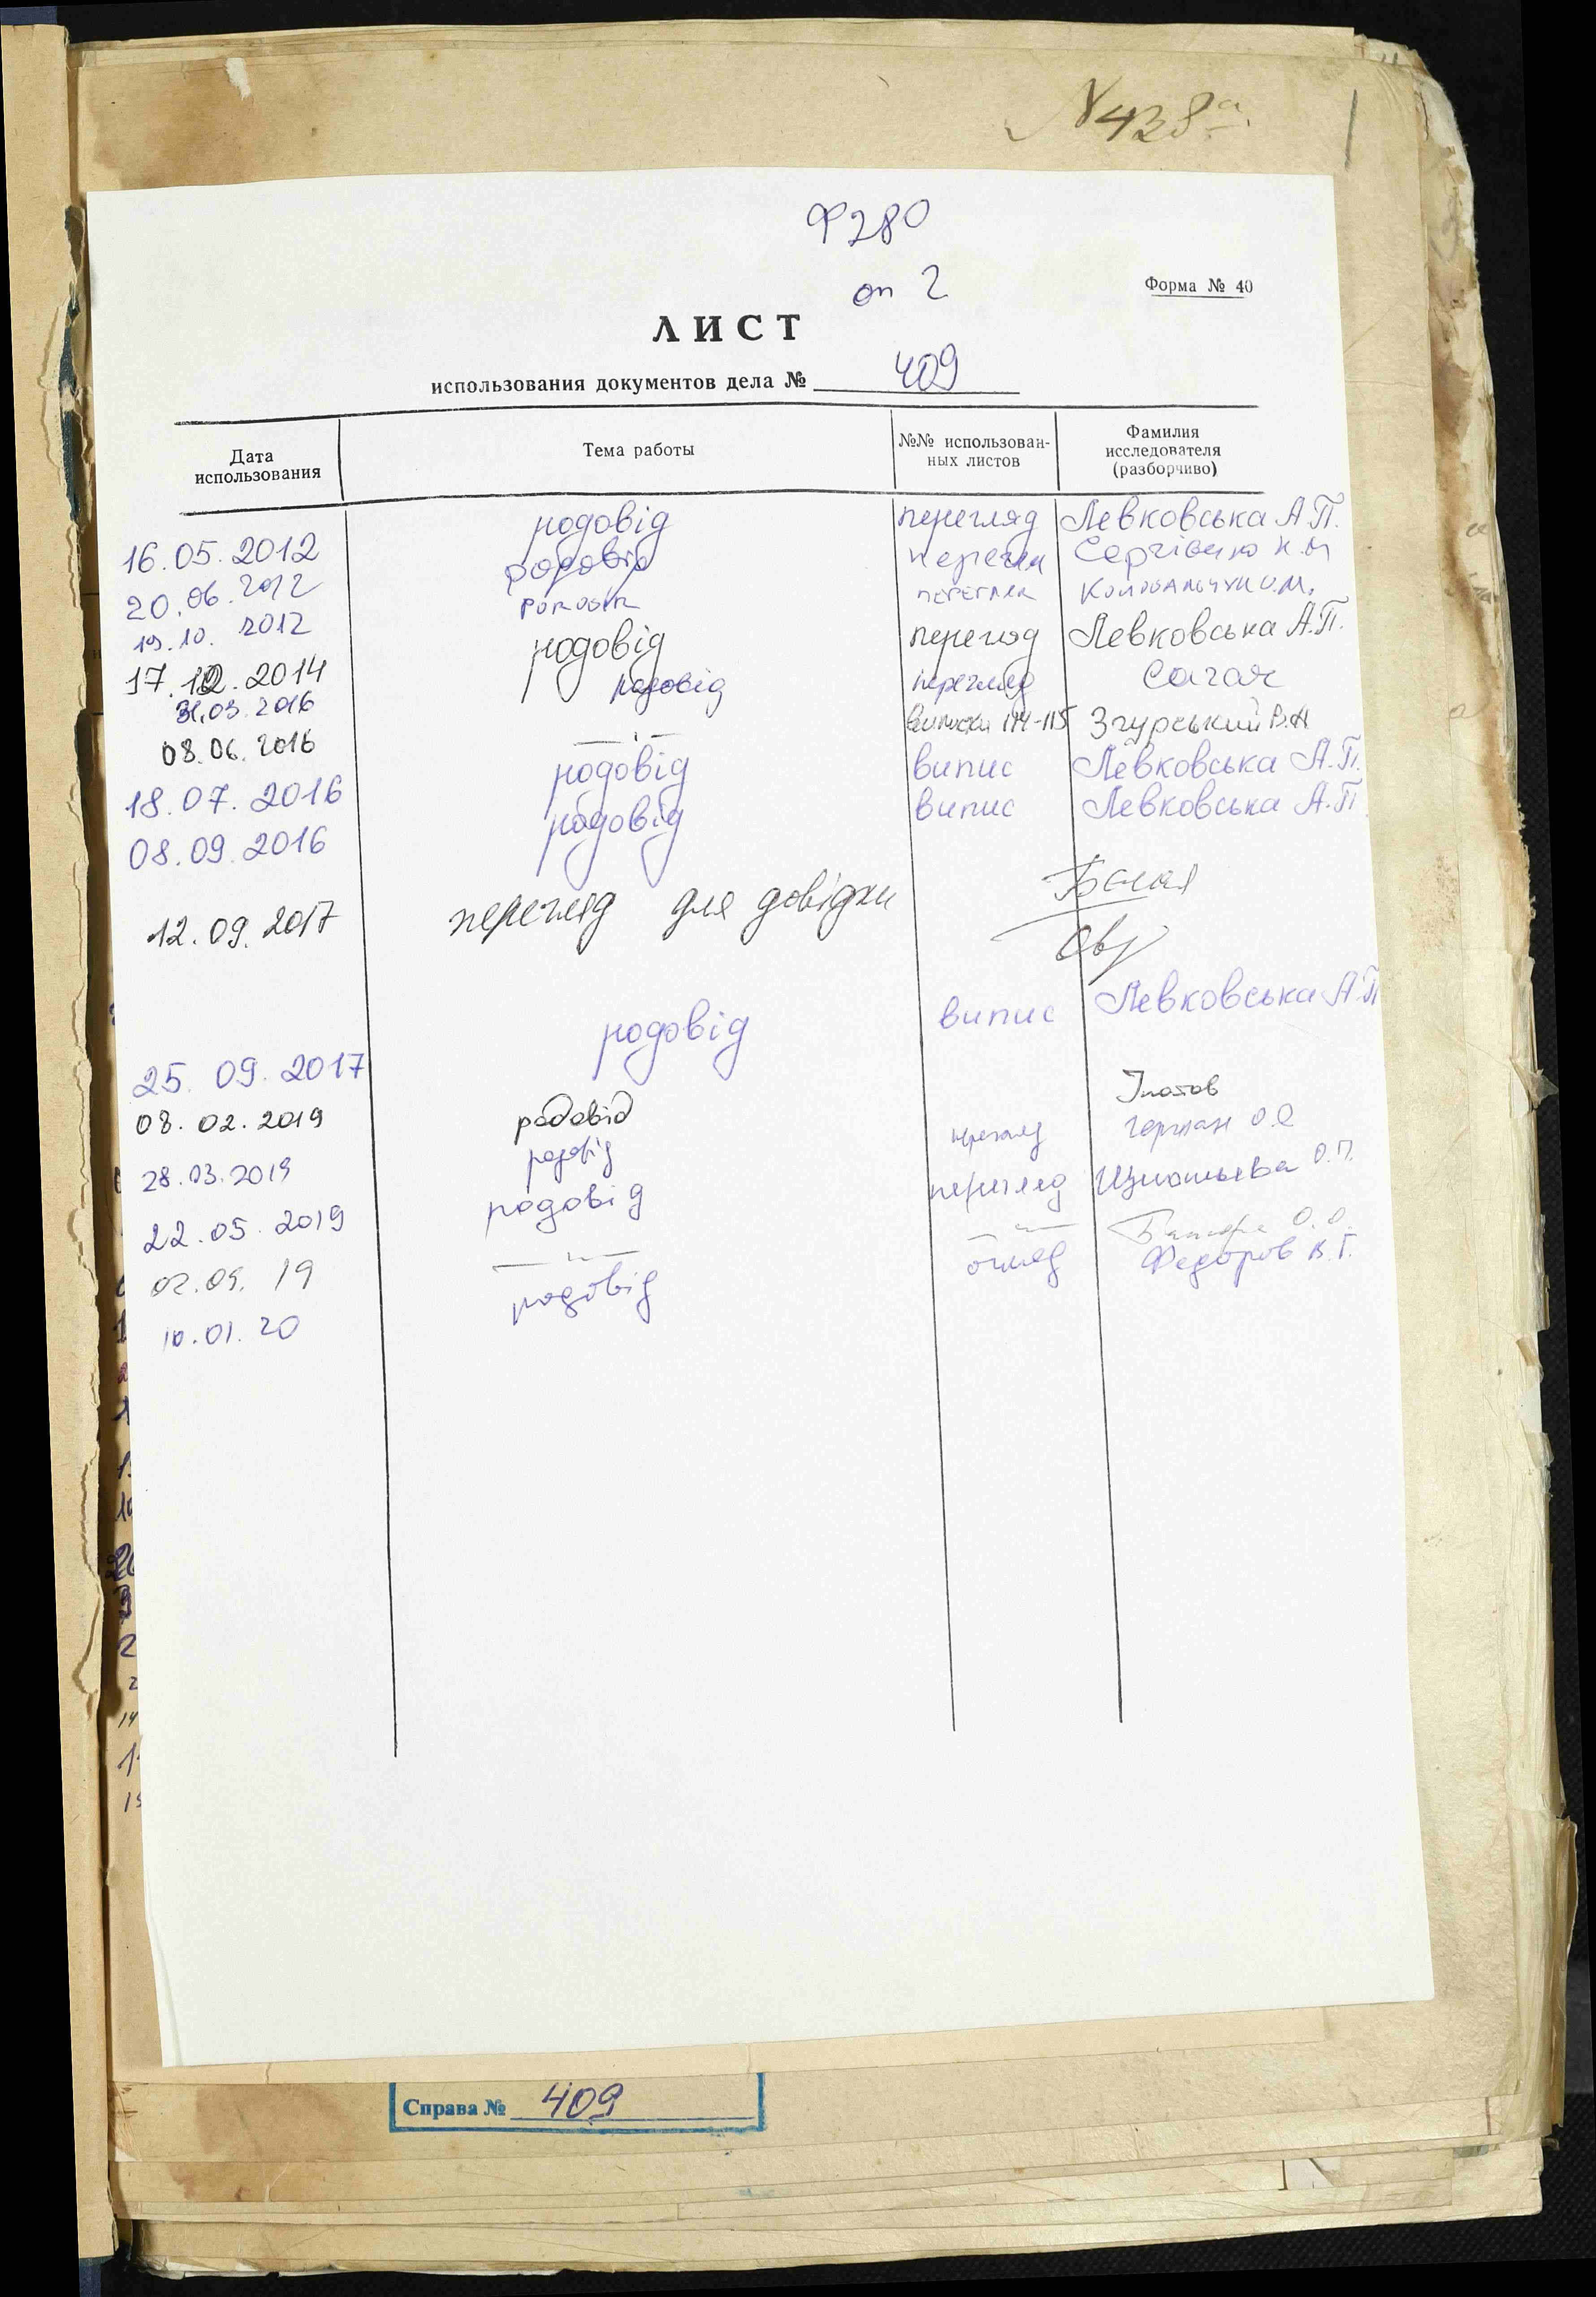 N 438а
Ф280
оп 2
Форма № 40
ЛИСТ
использования документов дела № 409
Дата использования
Тема работы
№№ использован-
ных листов
Фамилия
исследователя
(разборчиво)
16.05.2012 родовід перегляд Левковська А.П.
20.06.2012 родовід перегляд
19.10.2012 РОДОВІД ПЕРЕГЛЯД
17.12.2014 родовід перегляд Левковська А.П.
31.03.2016 родовід перегляд Сагач
08.06.2016 —"— виписки 114-115 Згурський В.Н
18.07.2016 родовід випис Левковська А.П.
08.09.2016 родовід випис Левковська А.П
12.09.2017 перегляд для довідки
25.09.2017 родовід випис Левковська А.П
08.02.2019 родовід
28.03.2019 родовід перегляд Герман О.
22.05.2019 родовід перегляд О.П.
02.09.19 —"— —"— О.О.
10.01.20 родовід огляд Федоров В.Г.
Справа № 409